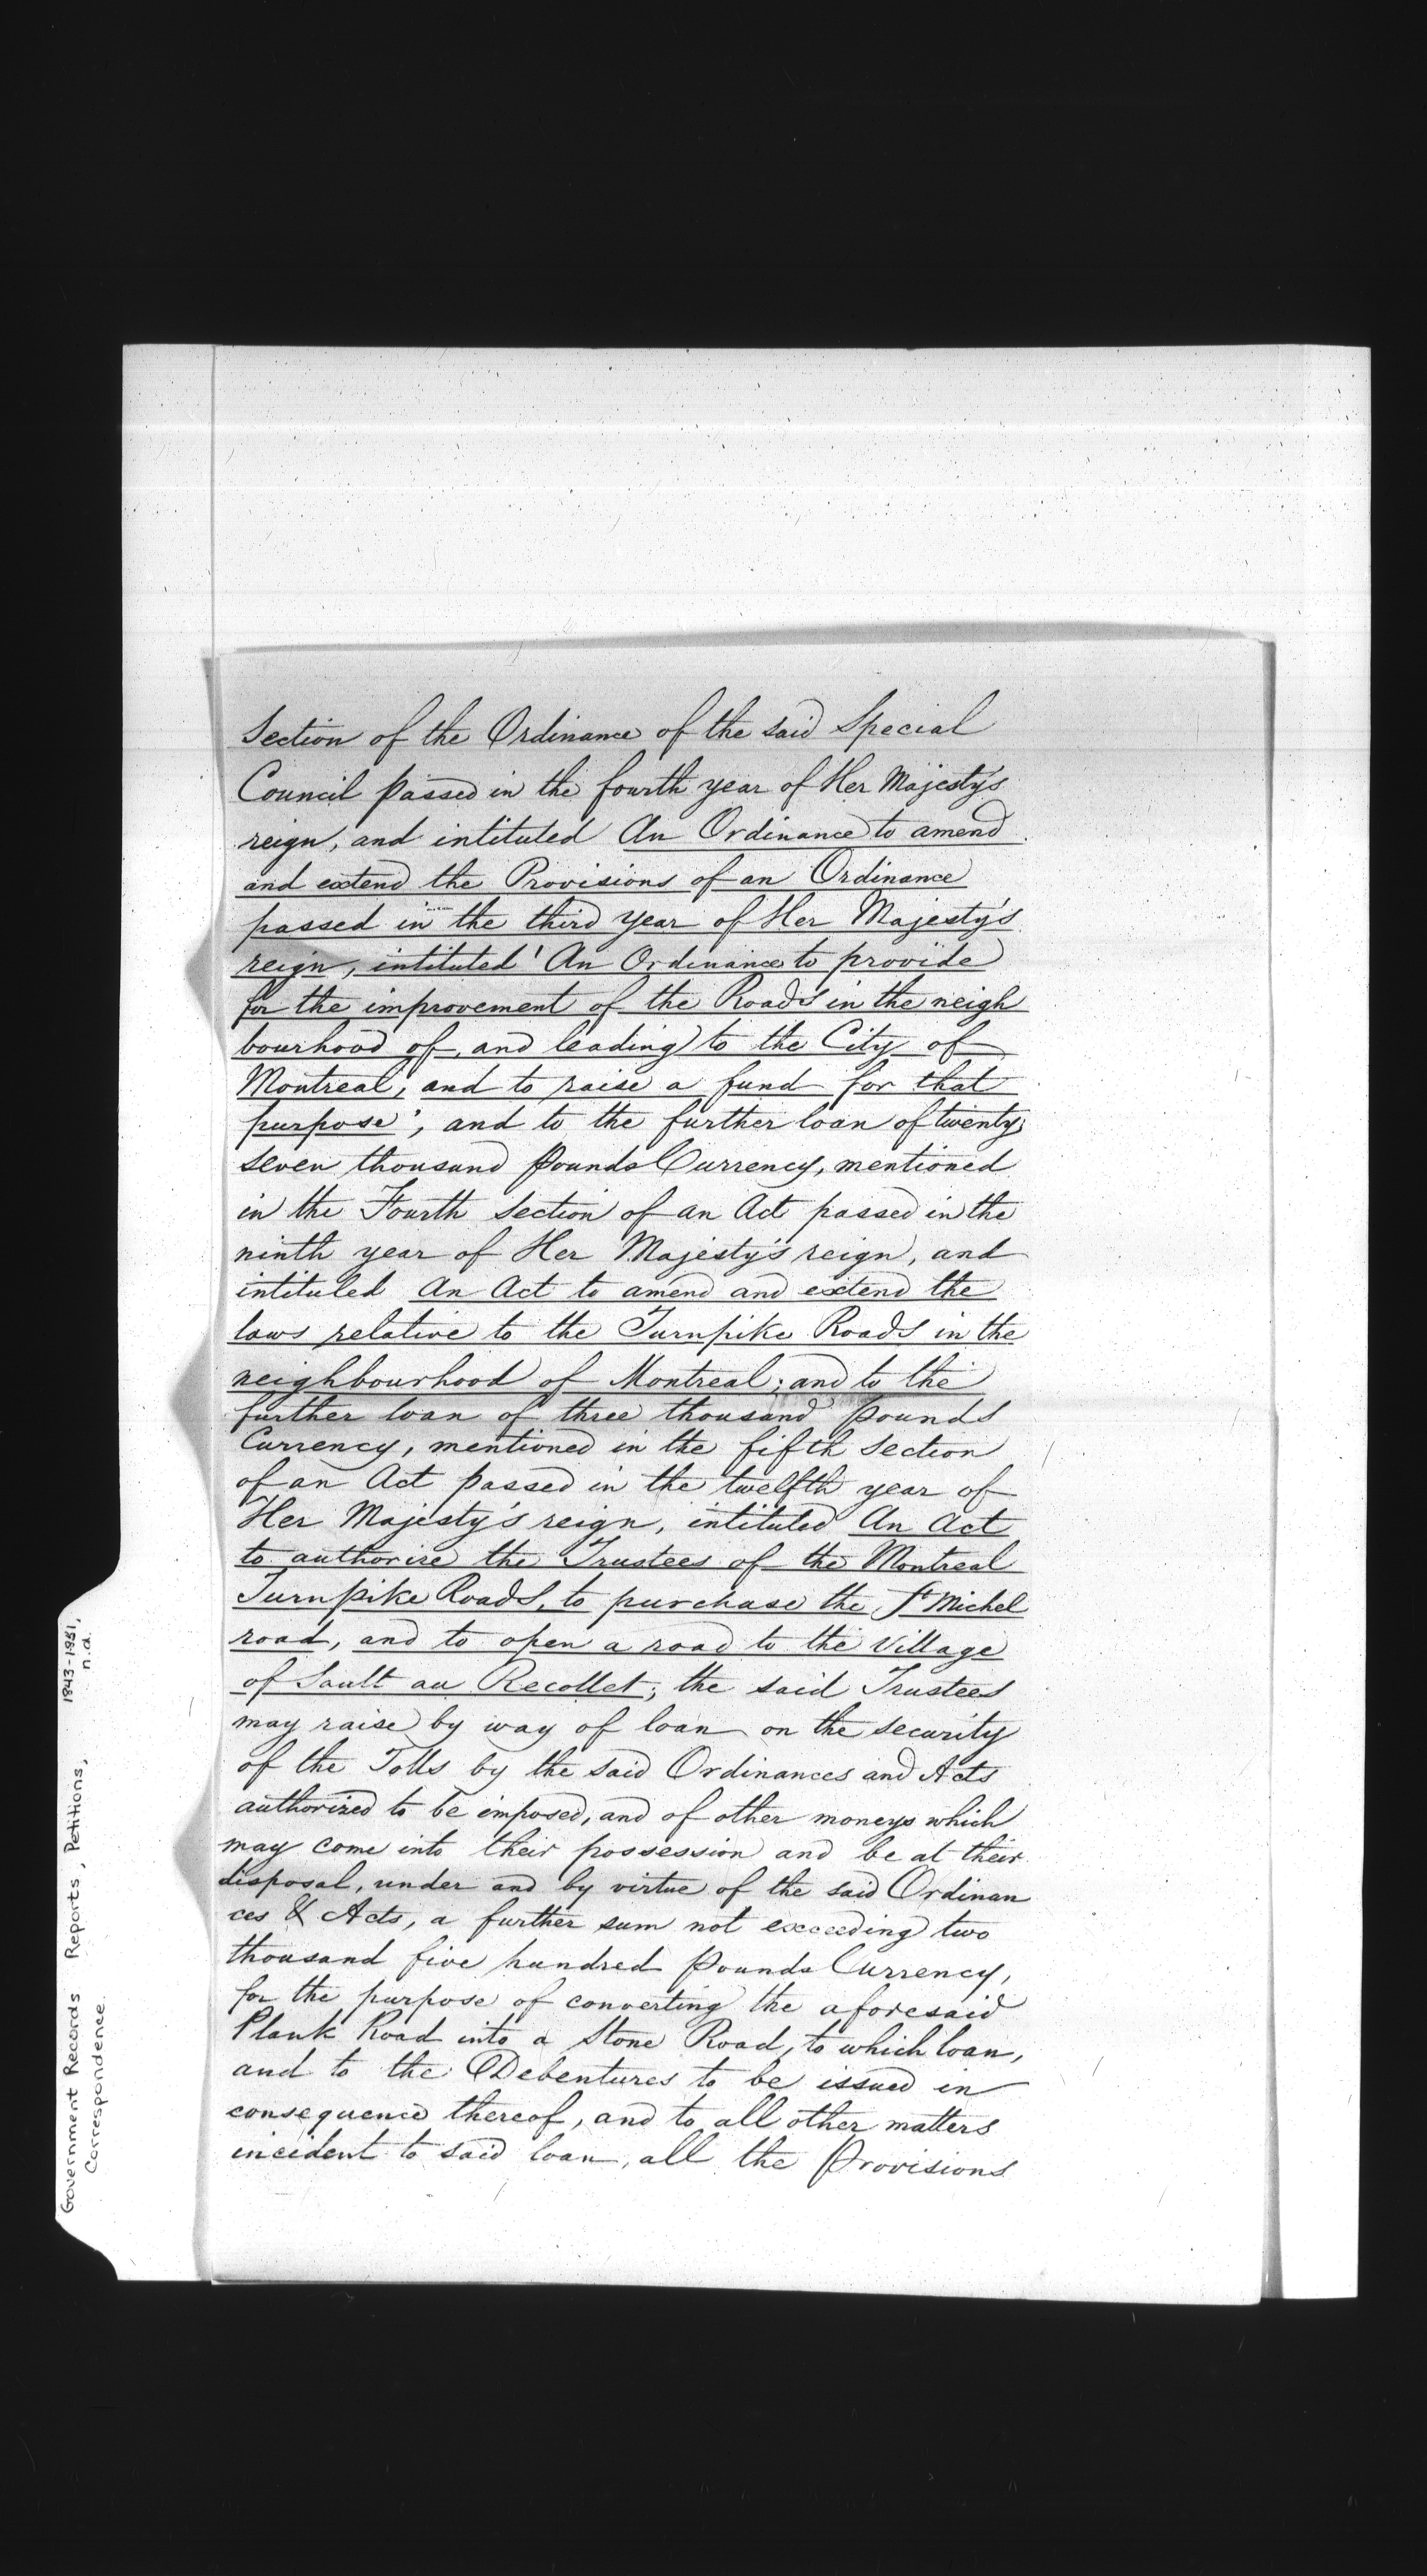 Section of the Ordinance of the said Special
Council passed in the fourth year of Her Majesty's
reign, and intituled An Ordinance to amend
and extend the Provisions of an Ordinance
passed in the third year of Her Majesty's
reign, intituled 'An Ordinance to provide
for the improvement of the Roads in the neigh
bourhood of, and leading to the City of
Montreal, and to raise a fund for that
purpose', and to the further loan of twenty
seven thousand pounds Currency, mentioned
in the Fourth Section of an Act passed in the
ninth year of Her Majesty's reign, and
intituled An Act to amend and extend the
laws relative to the Turnpike Roads in the
neighbourhood of Montreal; and to the
further loan of three thousand pounds
Currency, mentioned in the fifth section
of an Act passed in the twelfth year of
Her Majesty's reign, intituled An Act
to authorize the Trustees of the Montreal
Turnpike Roads, to purchase the St Michel
road, and to open a road to the Village
of Sault au Recollet; the said Trustees
may raise by way of loan on the security
of the Tolls by the said Ordinances and Acts
authorized to be imposed, and of other moneys which
may come into their possession and be at their
disposal, under and by virtue of the said Ordinan
ces & Acts, a further sum not exceeding two
thousand five hundred pounds Currency,
for the purpose of converting the aforesaid
Plank Road into a Stone Road, to which loan,
and to the Debentures to be issued in
consequence thereof, and to all other matters
incident to said loan, all the Provisions
Government Records Reports, Petitions, 1843-1951,
Correspondence. n.d.